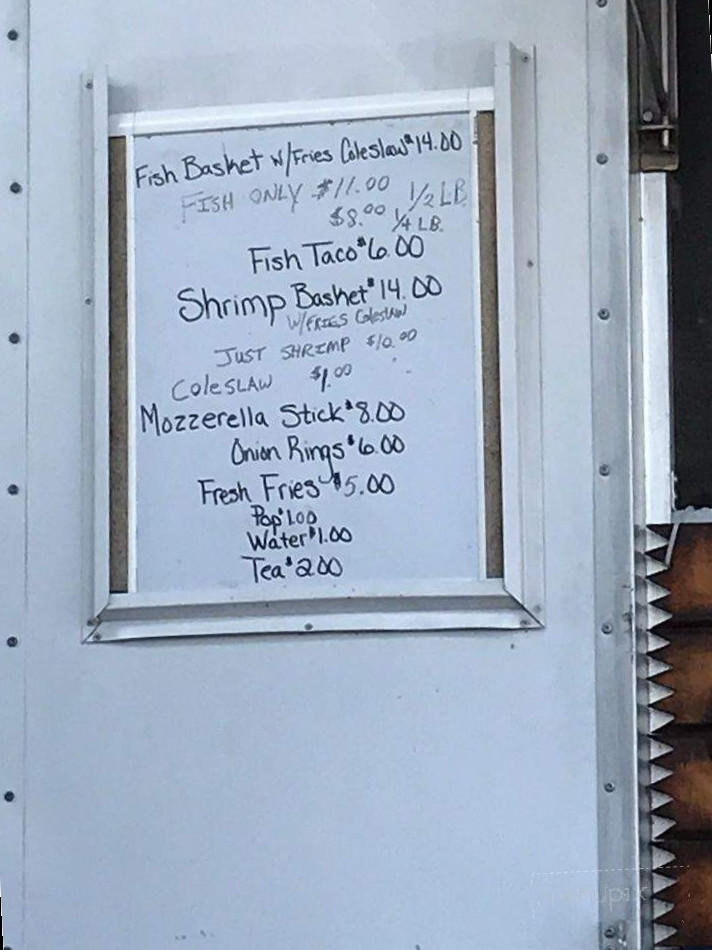 Fish Basket w/Fries Coleslaw $14.00
FISH ONLY $11.00 1/2 LB.
$8.00 1/4 LB.
Fish Taco $6.00
Shrimp Basket $14.00
W/FRIES Coleslaw
JUST SHRIMP $10.00
ColeSLAW $1.00
Mozzerella Stick $8.00
Onion Rings $6.00
Fresh Fries $5.00
Pop $1.00
Water $1.00
Tea $2.00